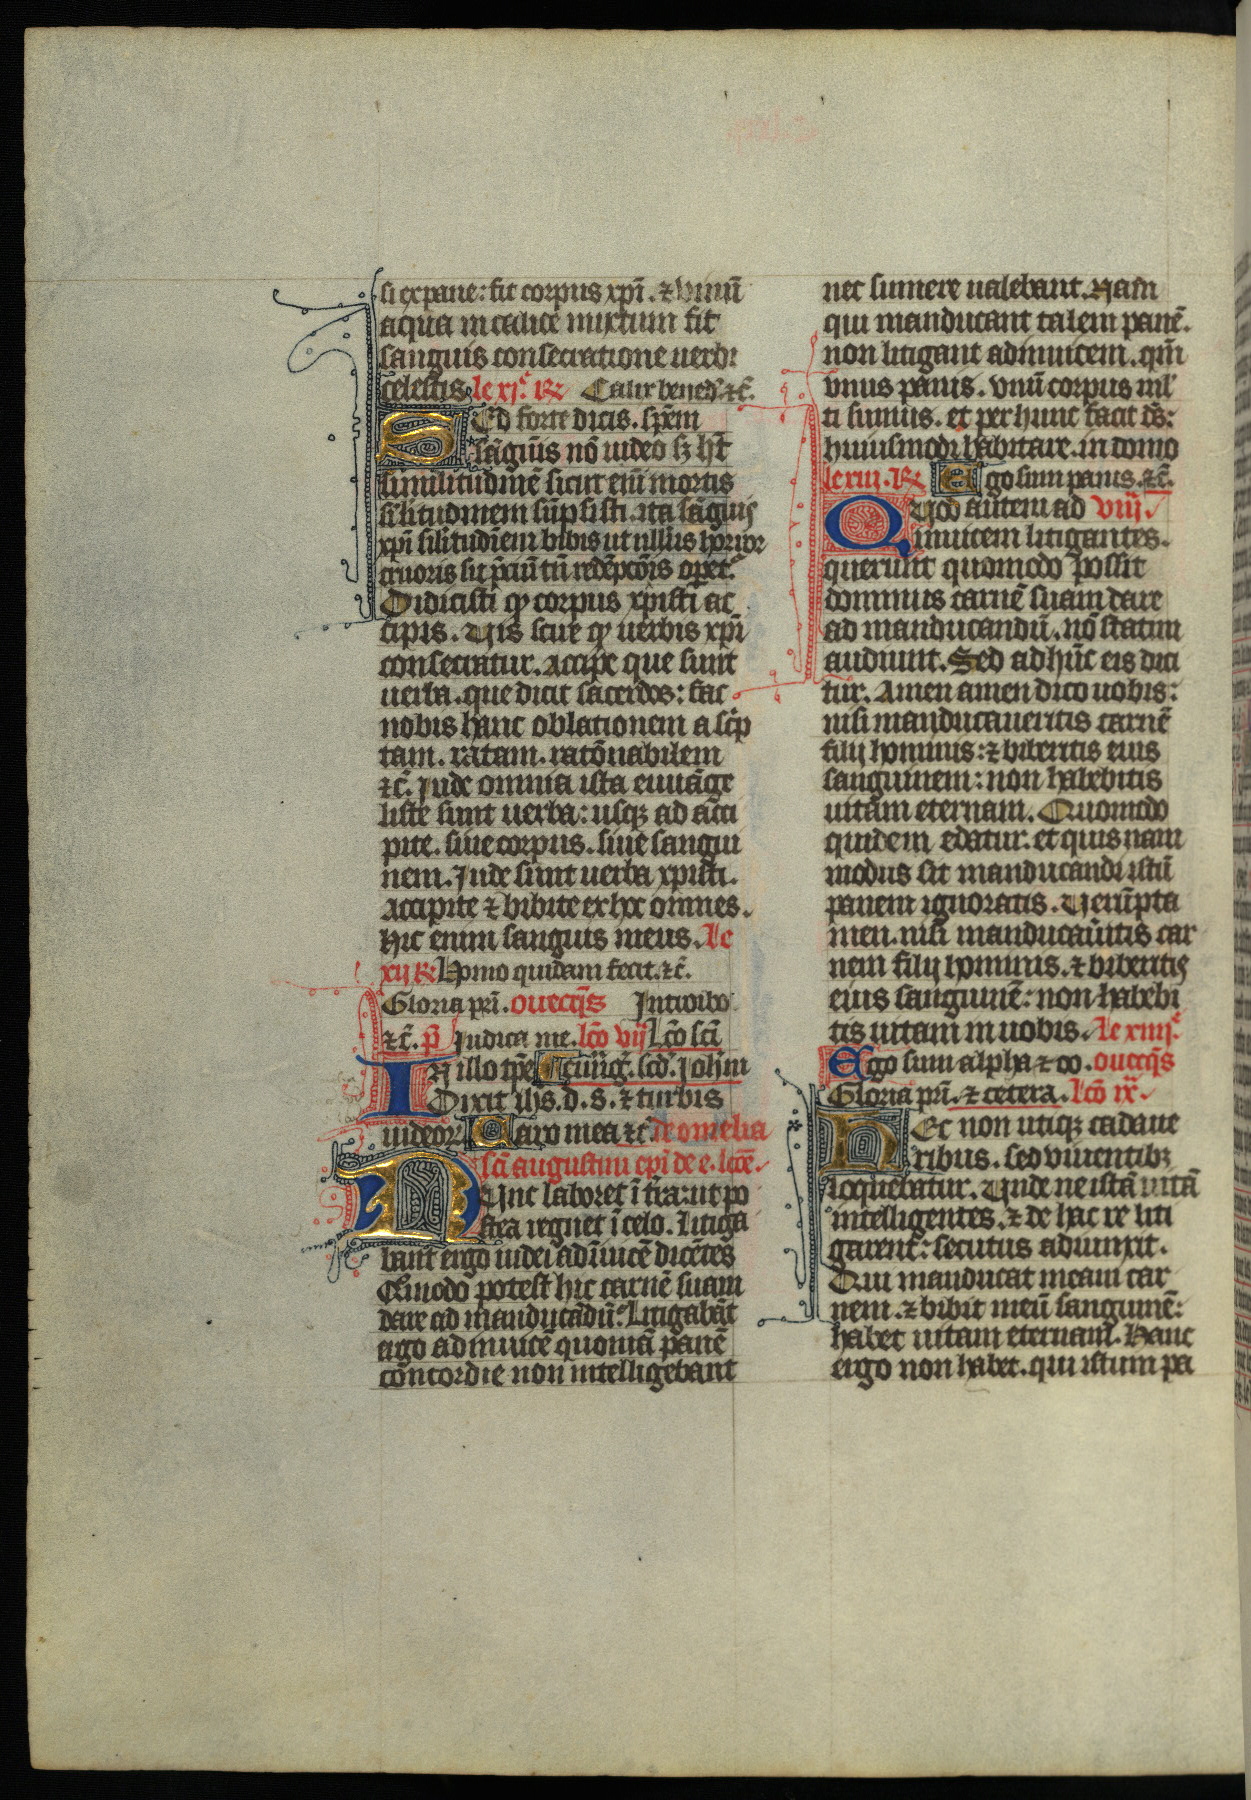 si ex pane: fit corpus xpī. ⁊ vinū
aqua in calice mixtum fit
sanguis consecratione uerbi
celestis. le xj. R̶ Calix bened. ⁊c̄.
SEd forte dicis. spēm
sāguīs nō uideo sꝫ hꝫt
similitudinē sicut eni mortis
si'litudinem sūpsisti. ita sāguīs
xpī silitudīem bibis ut nullus horror
cruoris sit p̄ciū tn̄ redēpcōīs opet̄.
Didicisti qꝫ corpus xpisti ac
cipis. Vis scire qꝫ uerbis xpī
consecratur. accipe que sunt
uerba. que dicit sacerdos: fac
nobis hanc oblationem ascp̄
tam. ratam. ratōnabilem
⁊c̄. Inde omnia ista euuāge
liste sunt uerba: usqꝫ ad acci
pite. siue corpus. siue sangui
nem. Inde sunt uerba xpisti.
Accipite ⁊ bibite ex hoc omnes.
hic enim sanguis meus. le
xij R̶ Homo quidam fecit. ⁊c̄.
Gloria pri. Introibo
⁊c̄. p̄ Iudica me. lcō vij Lcō scī
IN illo tp̄e euūg. scd'. Johm
Dixit ihs. d. s. ⁊ turbis
iudeor. Caro mea ⁊c̄ de omelia
scī augustini epī de e. lcōe.
NUnc laboret ī t̄ra: ut po
stea regnet ī celo. Litiga
bant ergo iudei adīuicē dicētes
Qūmodo potest hic carnē suam
dare ad māducādū. Litigabāt
ergo ad inuicē quoniā panē
concordie non intelligebant
nec sumere ualebant. Nam
qui manducant talem panē.
non litigant adinuicem. qm̄
vnus panis. vnū corpus ml'
ti sumus. et per hunc facit ds̄:
huiusmodi habitare. in domo
le xiij. R̶ Ego sum panis. ⁊c̄.
QUod autem ad viij.
inuicem litigantes.
querunt quomodo possit
dominus carnē suam dare
ad manducandū. nō statim
audiunt. Sed adhūc eis dici
tur. Amen amen dico uobis:
nisi manducaueritis carnē
filij hominis: ⁊ biberitis eius
sanguinem: non habebitis
uitam eternam. Quomodo
quidem edatur. et quisnam
modus sit manducandi istū
panem ignoratis. Verūpta
men. nisi manducaūitis car
nem filij hominis. ⁊ biberitis
eius sanguinē: non habebi
tis uitam in uobis. le xiiij.
Ego sum alpha ⁊ ω.
Gloria pri. ⁊ cetera. lcō ix.
HEc non utiqꝫ cadaue
ribus. sed viuentibꝫ
loquebatur. Unde ne istā uitā
intelligentes. ⁊ de hac re liti
garent: secutus adiunxit.
Qui manducat meam car
nem. ⁊ bibit meū sanguinē:
habet uitam eternam. Hanc
ergo non habet. qui istum pa